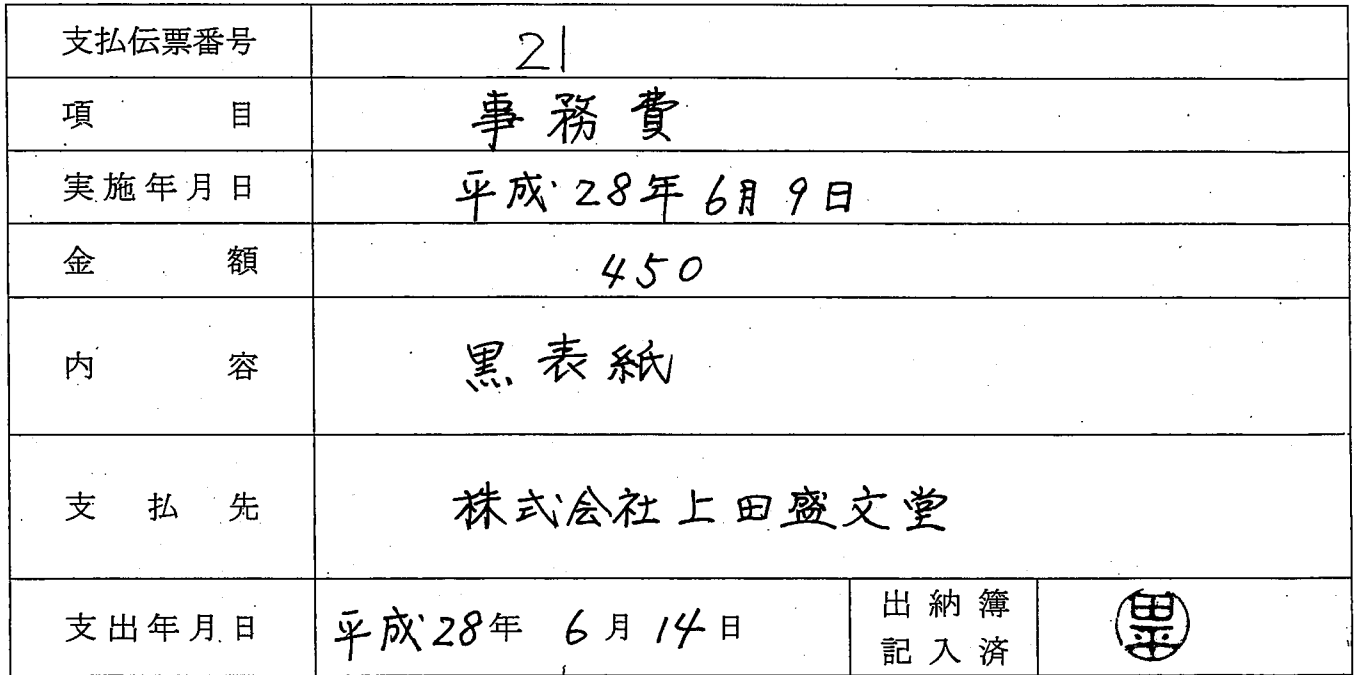 支払伝票番号 21
項目 事務費
実施年月日 平成28年6月9日
金額 450
内容 黒表紙
支払先 株式会社上田盛文堂
支出年月日 平成28年 6月14日 出納簿
記入済